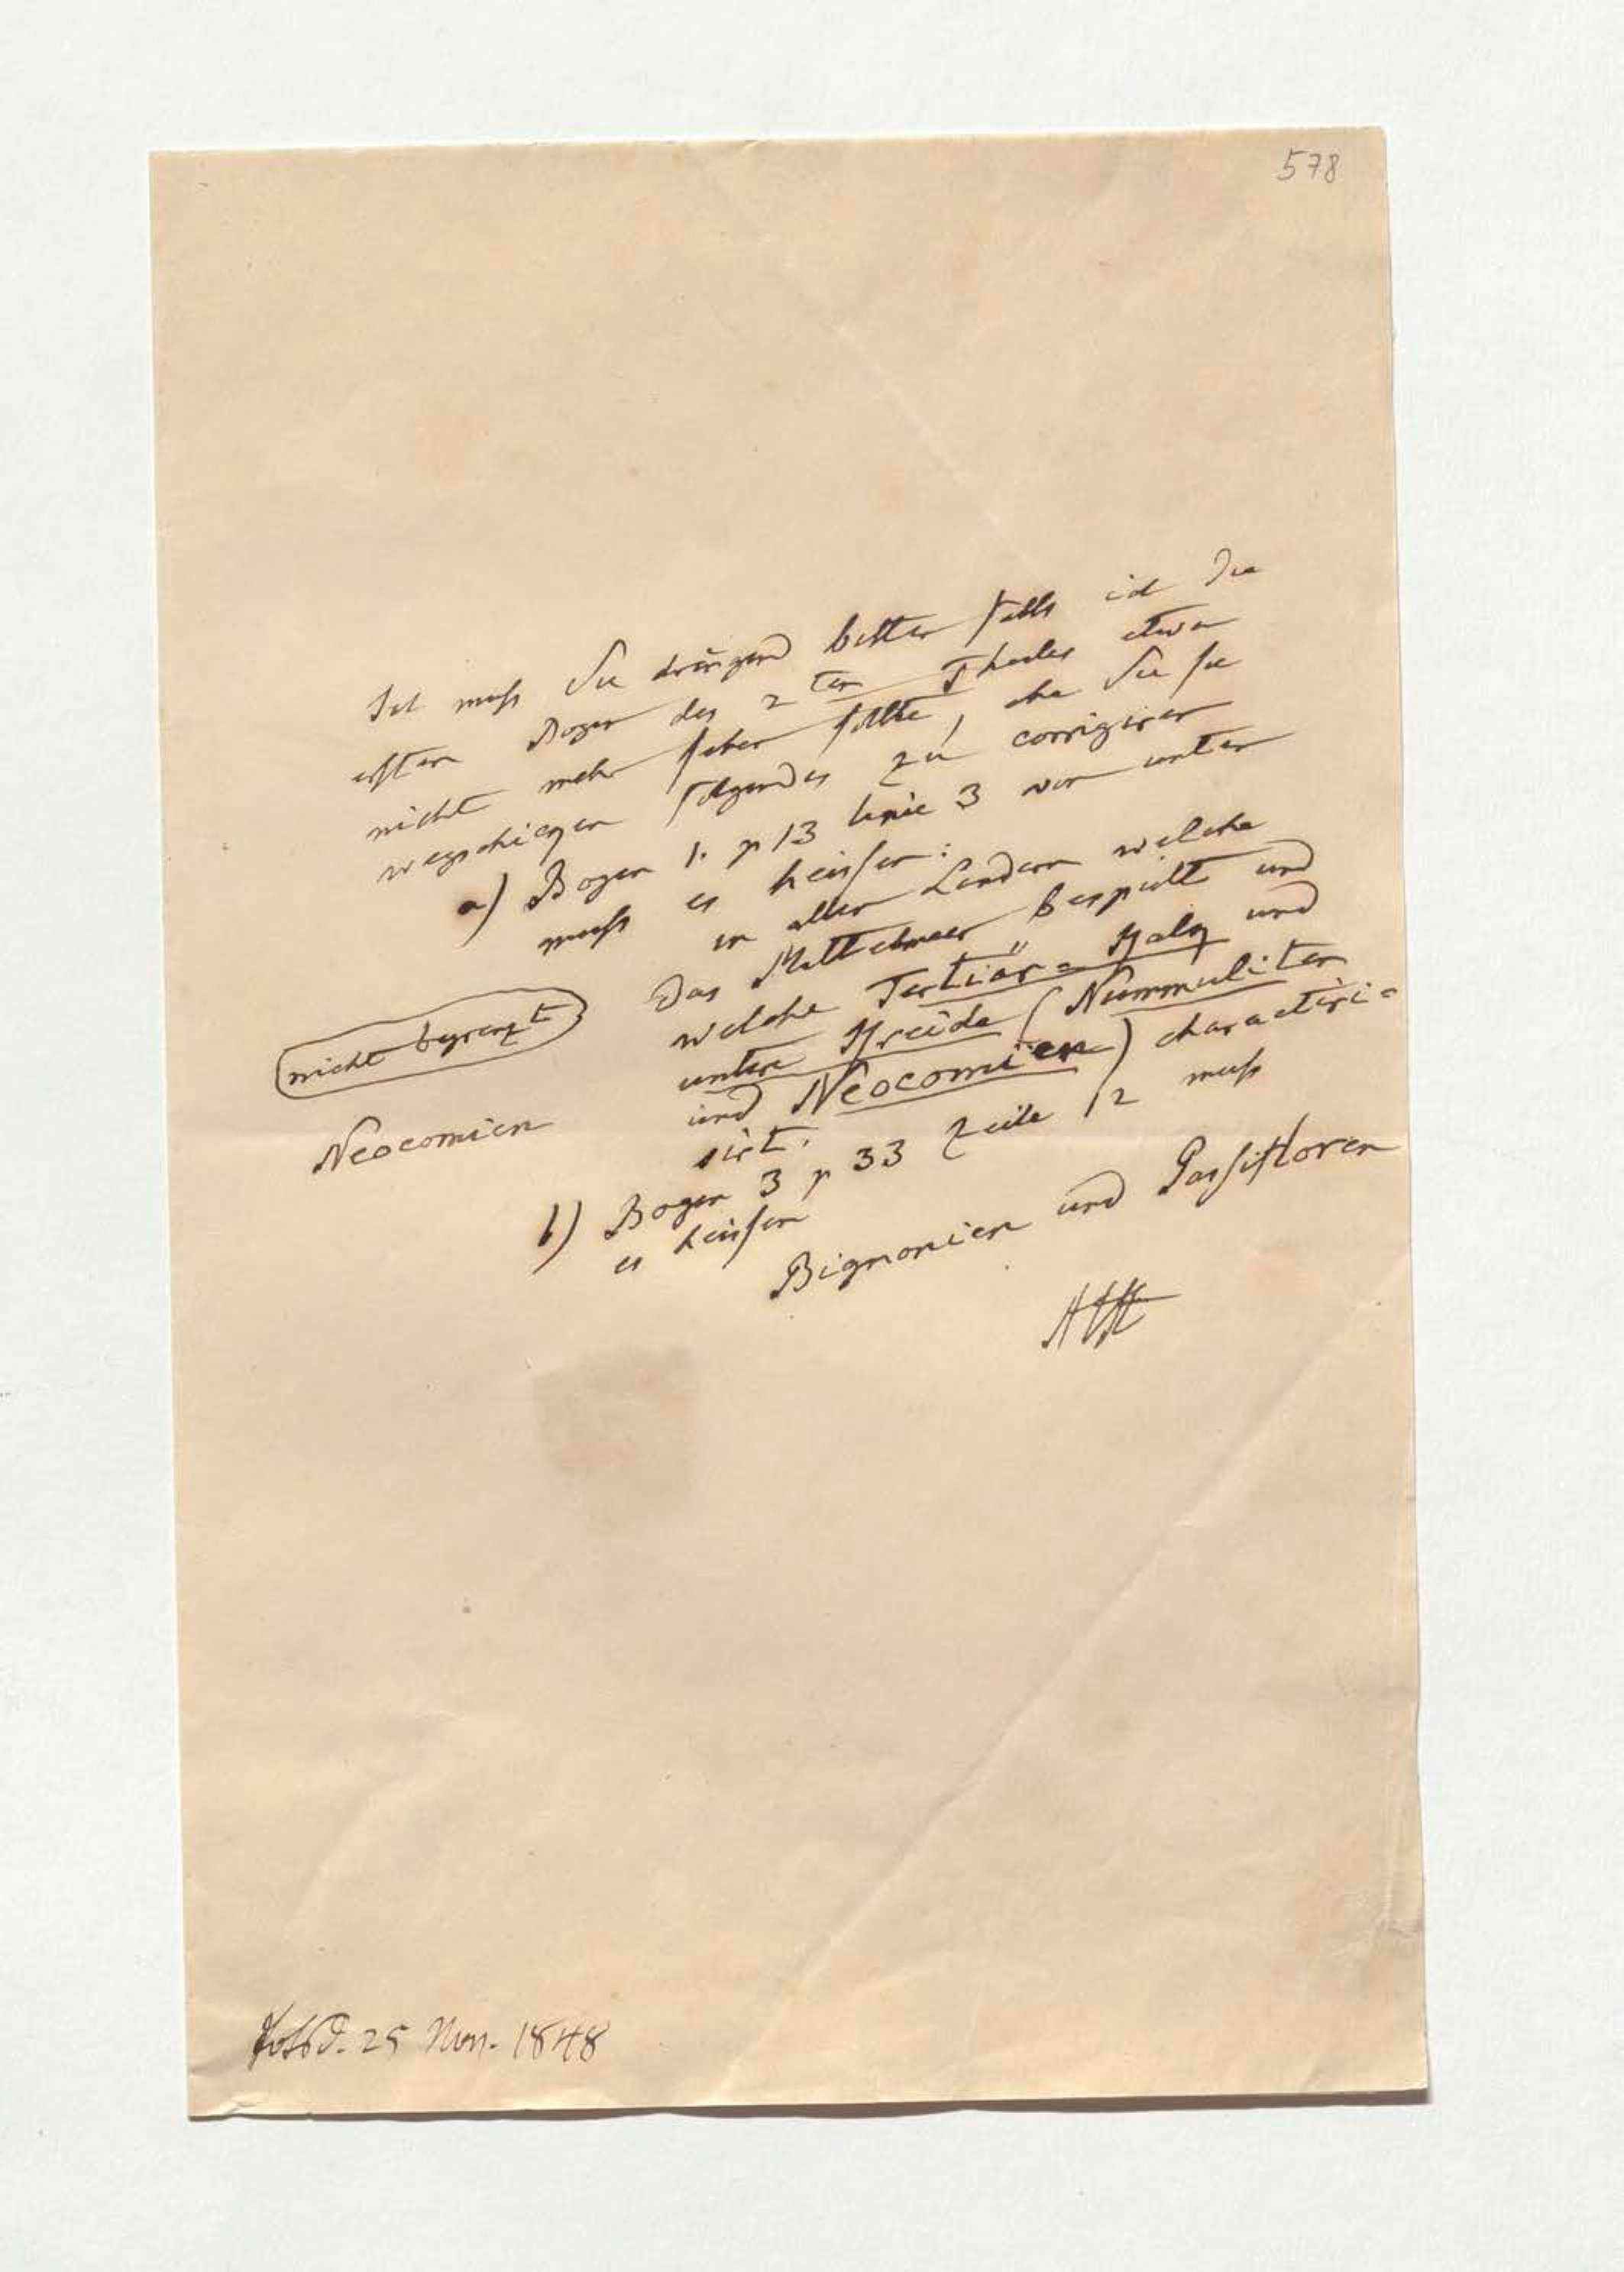 578
Ich muß Sie dringend bitten falls ich die
ersten Bogen des 2ten Theiles etwa
nicht mehr sehen sollte, ehe Sie sie
wegschicken folgendes zu corrigiren
a) Bogen 1. p 13 linie 3 von unten
muß es heißen:
in allen Ländern welche
das Mittelmeer bespült und
welche Tertiär-Kalk und
untere Kreide (Nummuliten
und Neocomien) characteri=
sirt.
nicht begrenzt
Neocomien
b) Bogen 3 p 33 Zeile 12 muß
es heißen
Bignonien und Passifloren
AHt
Potsd. 25 Nov. 1848